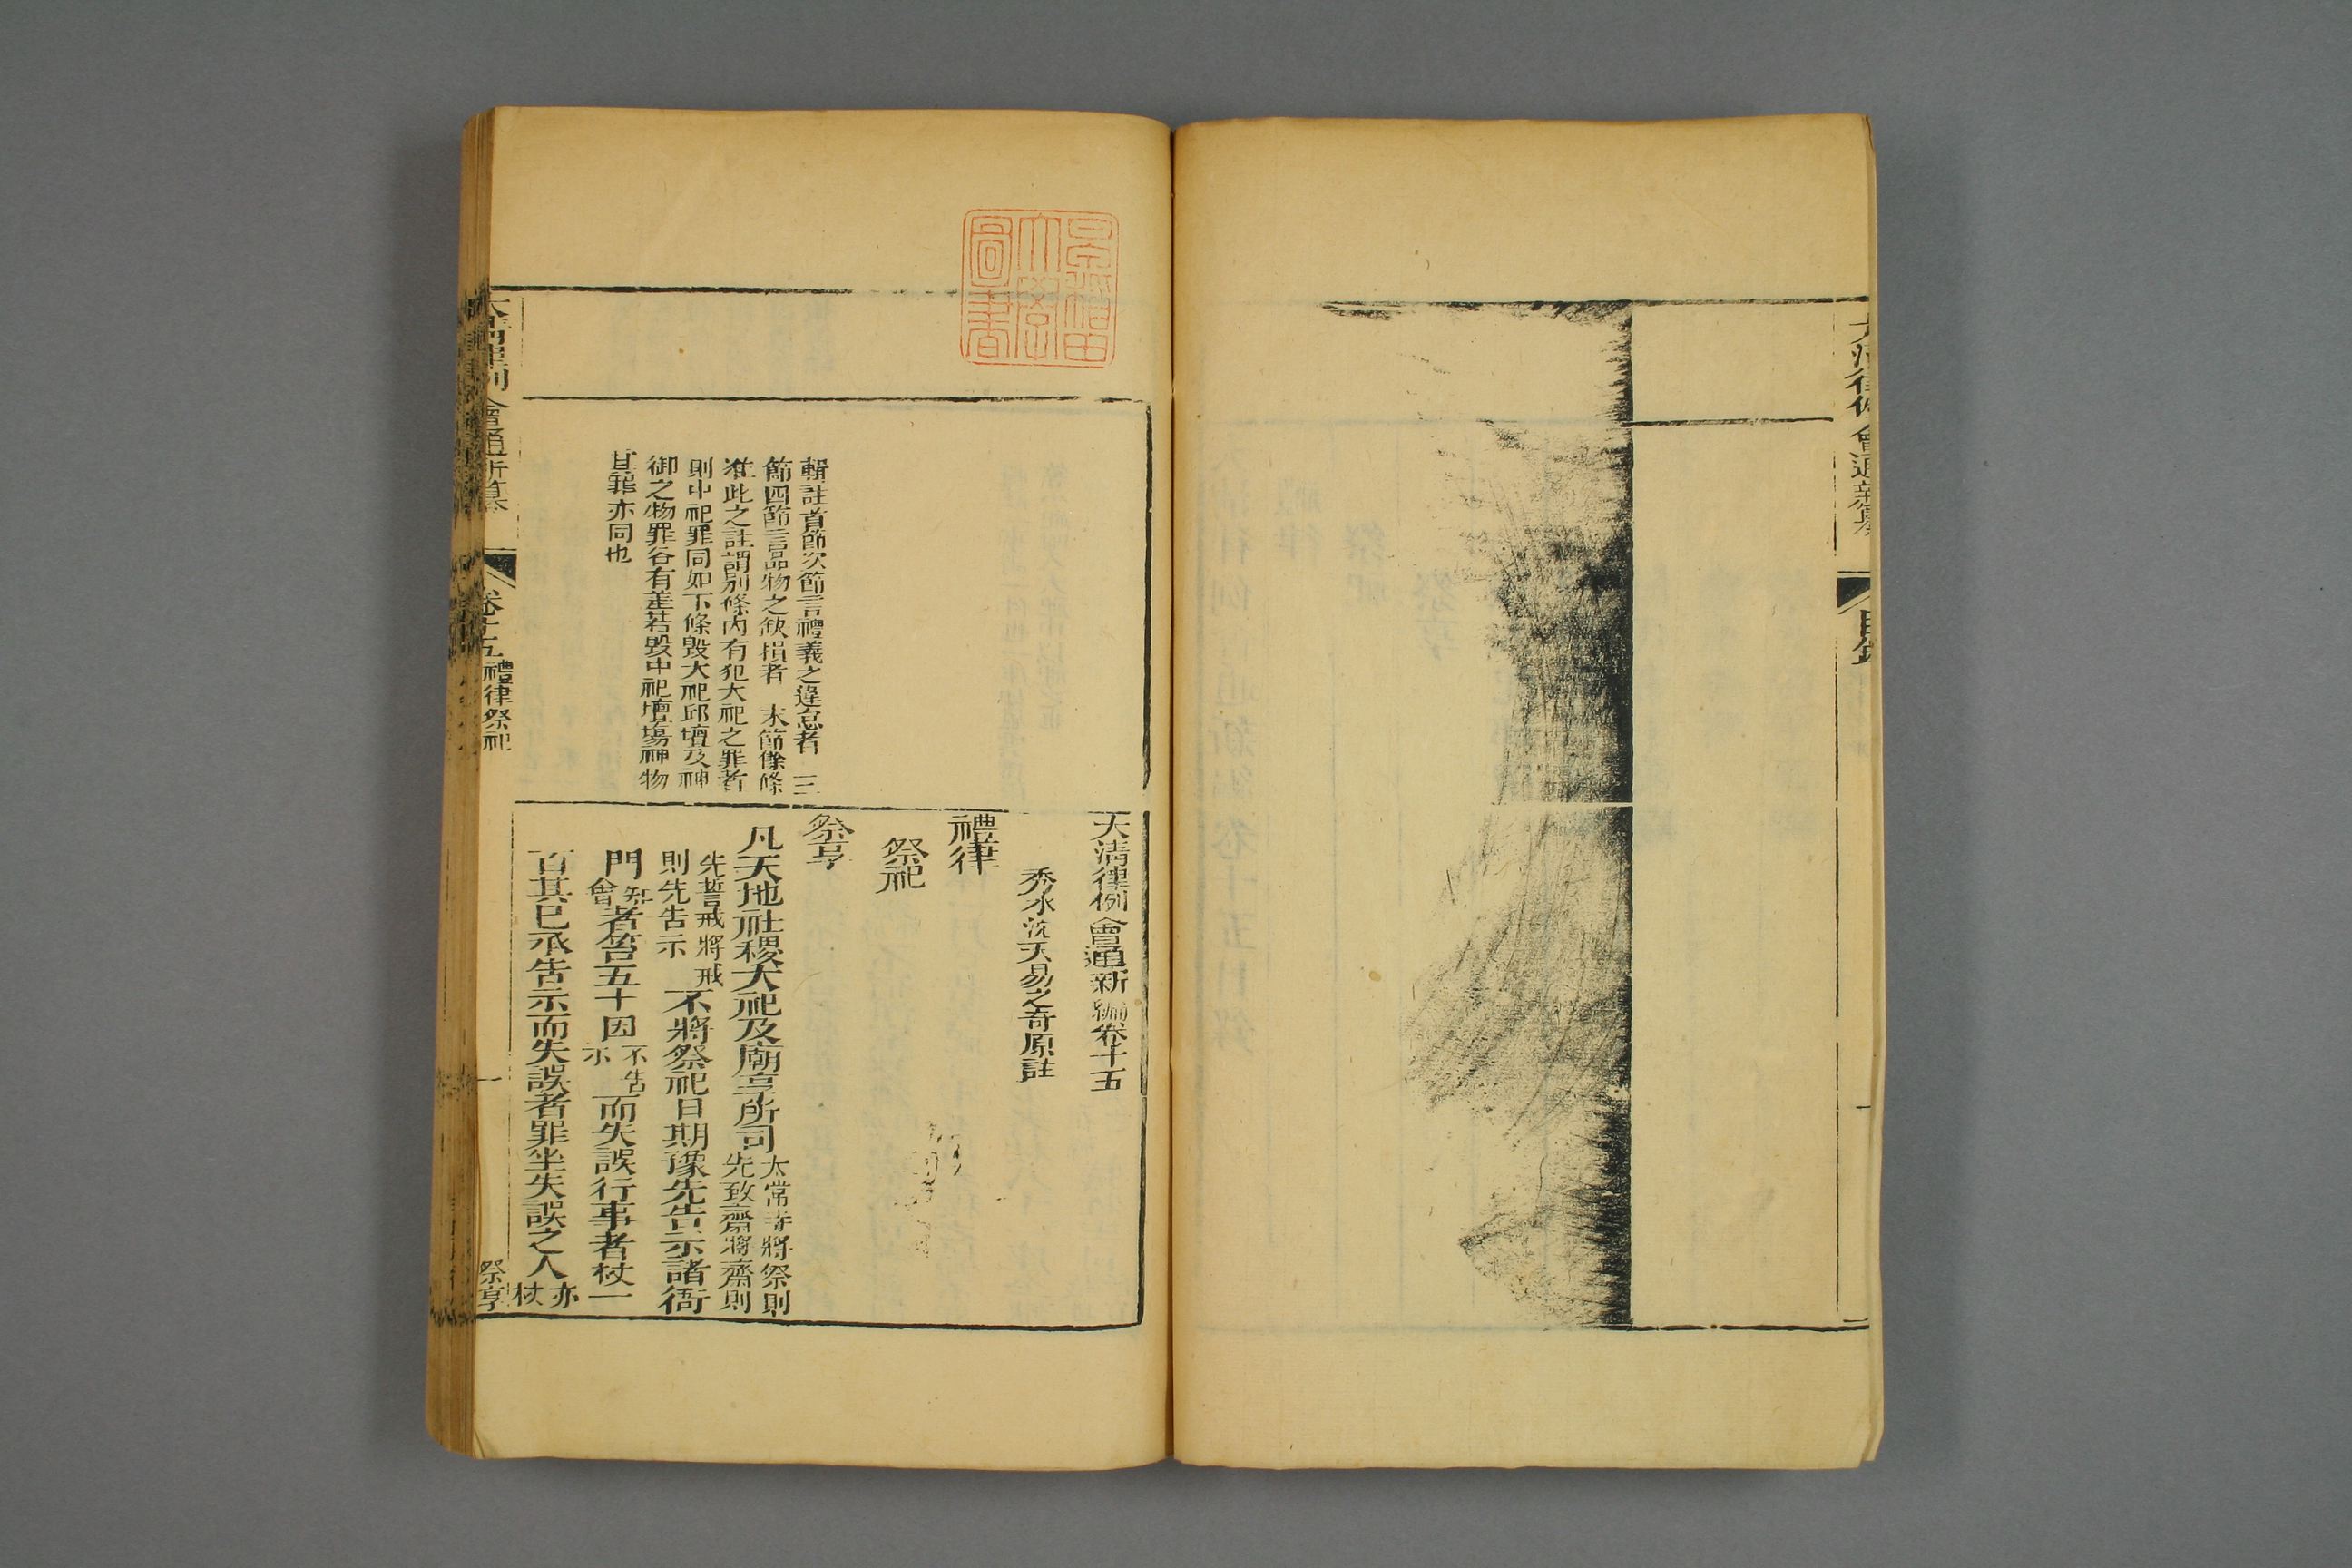 大清律例會通新纂
目錄
大清律例會通新編卷十五
秀水沈天易之奇原註
禮律
祭祀
祭享
凡天地社稷大祀及廟享所司太常寺將祭則
先致齋將齋則
先誓戒將戒
則先告示不將祭祀日期豫先告示諸衙
門知
會者笞五十因不告
示而失誤行事者杖一
百其已承告示而失誤者罪坐失誤之人亦
杖
輯註首節次節言禮義之違怠者 三
節四節言品物之缺損者 末節餘條
准此之註謂別條內有犯大祀之罪者
則中祀罪同如下條毀大祀邱壇及神
御之物罪各有差若毀中祀壇場神物
其罪亦同也
大清律例會通新纂
卷十五 禮律祭祀
一
祭享
圖書